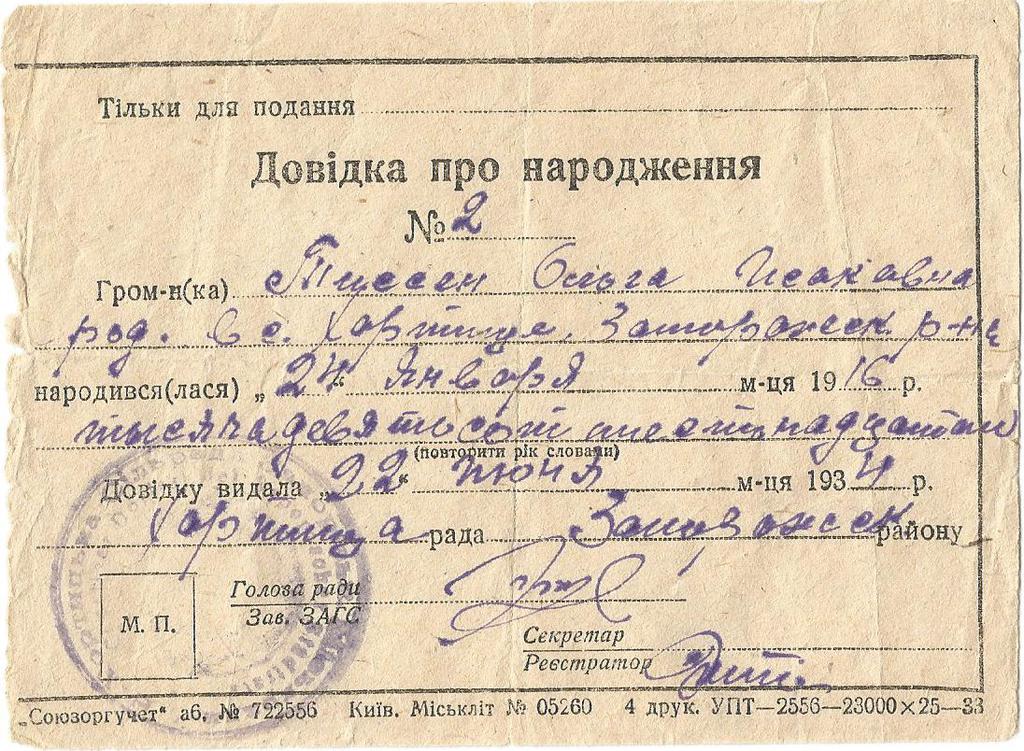 Тільки для подання
Довідка про народження
№ 2
Гром-н(ка) Тиссен Ольга Исаковна
род. в с. Хортице, Запорожск. р-не
народився(лася) „24“ января м-ця 1916 р.
тысяча девятьсот шестнадцатого
(повторити рік словами)
Довідку видала „22“ июня м-ця 1934 р.
Хортица рада Запорожск району
Голова ради
Зав. ЗАГС
М. П.
Секретар
Реєстратор
„Союзоргучет“ аб. № 722556 Київ. Міськліт № 05260 4 друк. УПТ—2556—23000×25—33